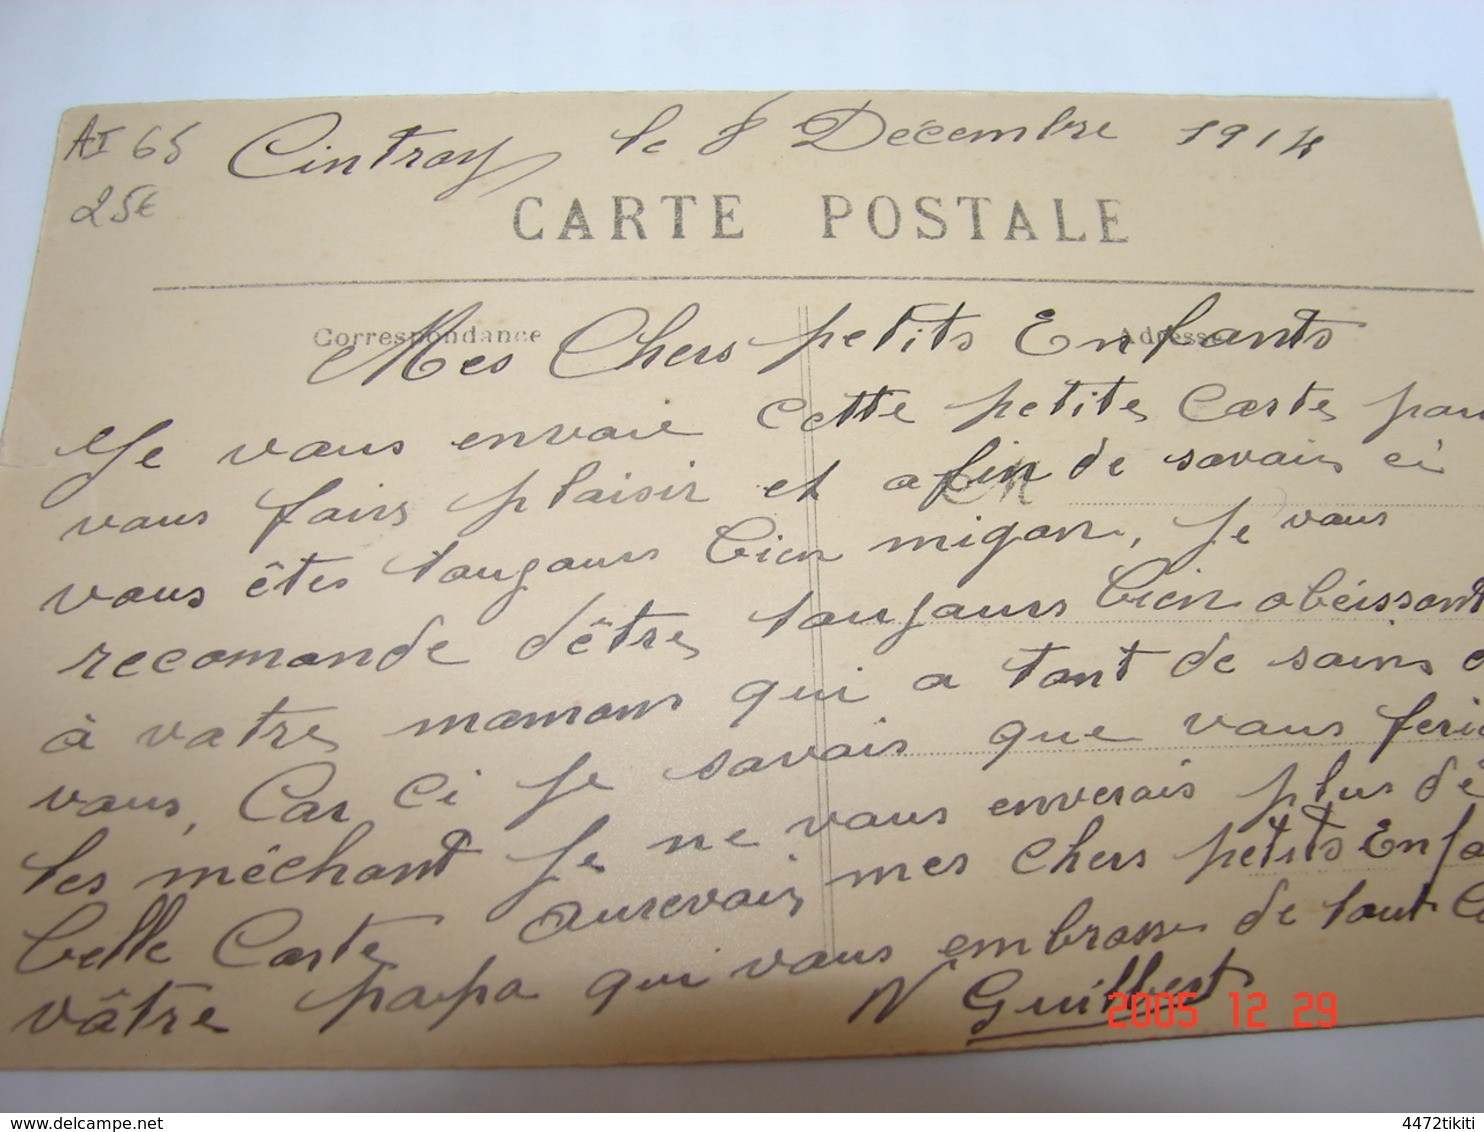 AI 65
25€
Cintray le 8 Décembre 1914
CARTE POSTALE
Correspondance
Adresse
Mes Chers petits Enfants
Je vous envoie cette petite Carte pou
vous faire plaisir et afin de savoir ci
vous êtes toujours bien migon, Je vous
recomande d'être toujours bien obéissant
à votre maman qui a tant de soins d
vous, Car Ci je savais que vous feri
les méchant Je ne vous enverais plus dé
belle Carte Aurevoir mes Chers petits Enfa
vôtre papa qui vous embrasse de tout C
N Guilbert
2005 12 29
www.delcampe.net
4472tikiti